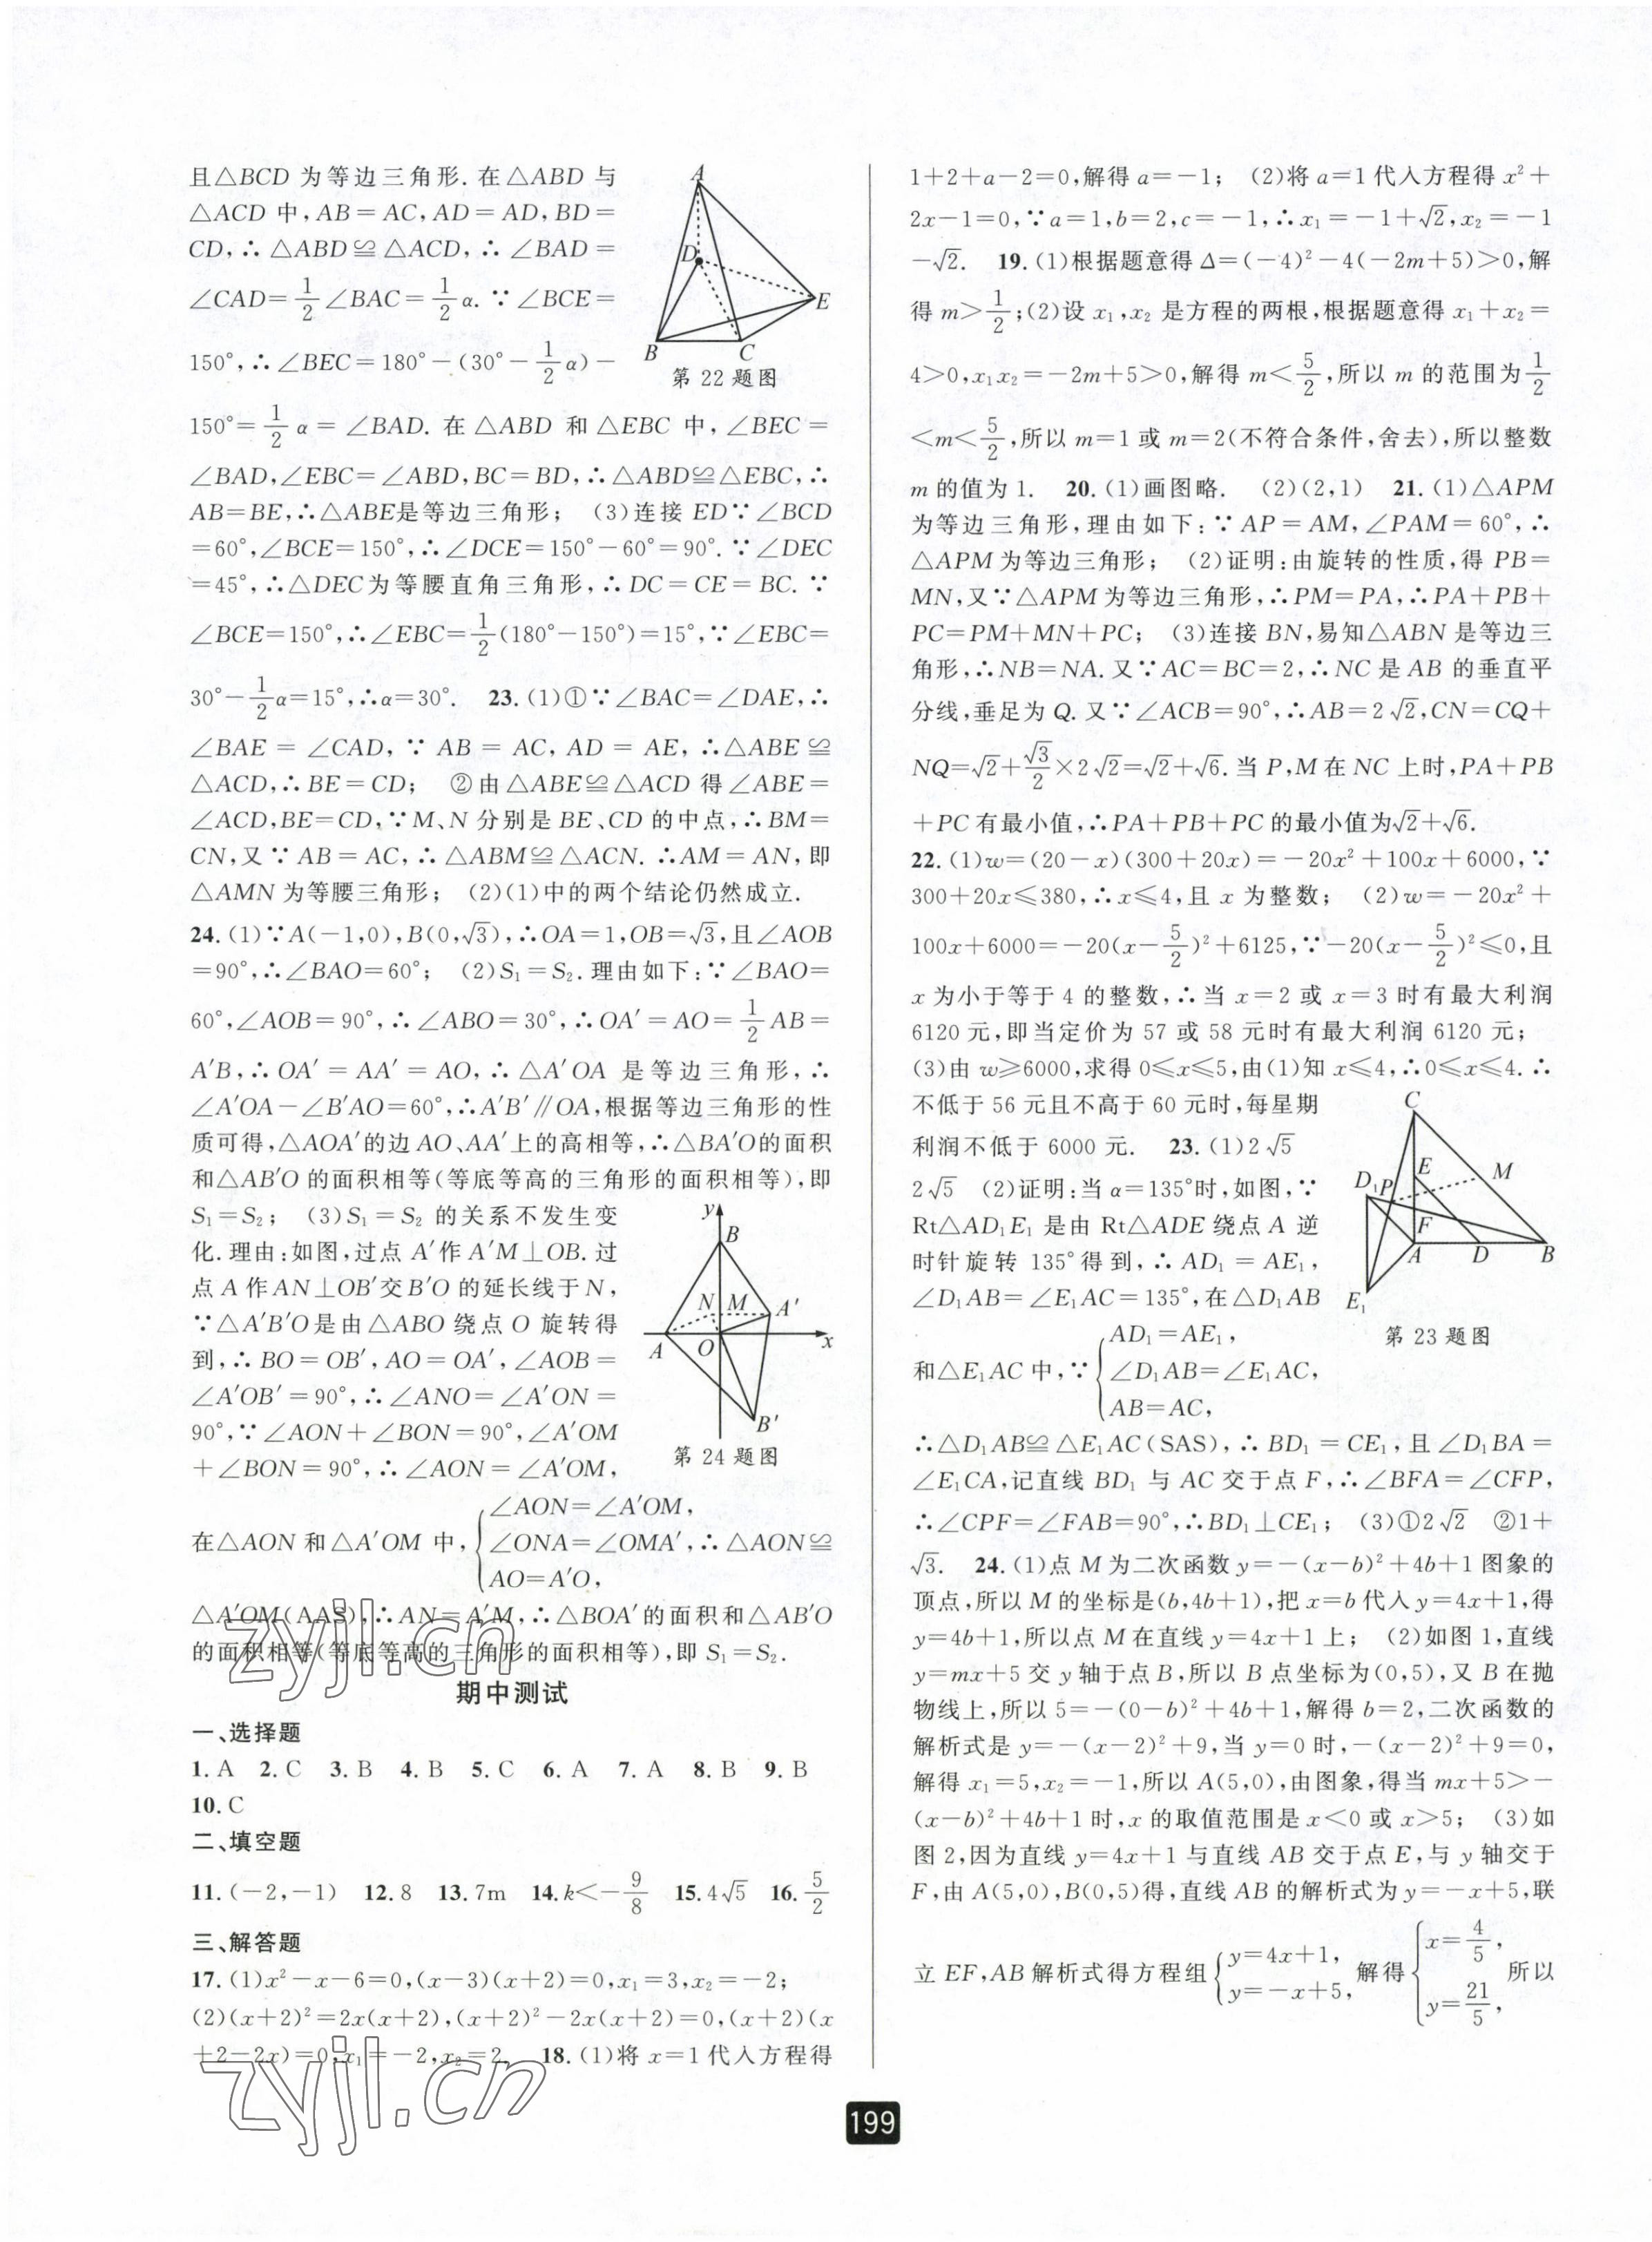 且△BCD 为等边三角形. 在△ABD 与
△ACD 中, AB=AC, AD=AD, BD=
CD, ∴△ABD≌△ACD, ∴∠BAD=
∠CAD=1/2∠BAC=1/2α. ∵∠BCE=
150°, ∴∠BEC=180°-(30°-1/2α)-
A
D
E
B
C
第 22 题图
150°=1/2α=∠BAD. 在△ABD 和△EBC 中, ∠BEC=
∠BAD, ∠EBC=∠ABD, BC=BD, ∴△ABD≌△EBC, ∴
AB=BE, ∴△ABE是等边三角形; (3)连接 ED∵∠BCD
=60°, ∠BCE=150°, ∴∠DCE=150°-60°=90°. ∵∠DEC
=45°, ∴△DEC为等腰直角三角形, ∴DC=CE=BC. ∵
∠BCE=150°, ∴∠EBC=1/2(180°-150°)=15°, ∵∠EBC=
30°-1/2α=15°, ∴α=30°. 23. (1)①∵∠BAC=∠DAE, ∴
∠BAE=∠CAD, ∵AB=AC, AD=AE, ∴△ABE≌
△ACD, ∴BE=CD; ②由△ABE≌△ACD 得∠ABE=
∠ACD, BE=CD, ∵M、N 分别是 BE、CD 的中点, ∴BM=
CN, 又∵AB=AC, ∴△ABM≌△ACN. ∴AM=AN, 即
△AMN 为等腰三角形; (2)(1)中的两个结论仍然成立.
24. (1)∵A(-1,0), B(0,√3), ∴OA=1, OB=√3, 且∠AOB
=90°, ∴∠BAO=60°; (2)S₁=S₂. 理由如下: ∵∠BAO=
60°, ∠AOB=90°, ∴∠ABO=30°, ∴OA′=AO=1/2AB=
A′B, ∴OA′=AA′=AO, ∴△A′OA 是等边三角形, ∴
∠A′OA-∠B′AO=60°, ∴A′B′∥OA, 根据等边三角形的性
质可得, △AOA′的边 AO、AA′上的高相等, ∴△BA′O的面积
和△AB′O 的面积相等(等底等高的三角形的面积相等), 即
S₁=S₂; (3)S₁=S₂ 的关系不发生变
化. 理由: 如图, 过点 A′作 A′M⊥OB. 过
点 A 作 AN⊥OB′交 B′O 的延长线于 N,
∵△A′B′O是由△ABO 绕点 O 旋转得
到, ∴BO=OB′, AO=OA′, ∠AOB=
∠A′OB′=90°, ∴∠ANO=∠A′ON=
90°, ∵∠AON+∠BON=90°, ∠A′OM
+∠BON=90°, ∴∠AON=∠A′OM,
y
B
N M A′
A O x
B′
第 24 题图
在△AON 和△A′OM 中, {∠AON=∠A′OM,
∠ONA=∠OMA′, ∴△AON≌
AO=A′O,
△A′OM(AAS), ∴AN=A′M, ∴△BOA′的面积和△AB′O
的面积相等(等底等高的三角形的面积相等), 即 S₁=S₂.
zyjl.cn
期中测试
一、选择题
1. A 2. C 3. B 4. B 5. C 6. A 7. A 8. B 9. B
10. C
二、填空题
11. (-2,-1) 12. 8 13. 7m 14. k<-9/8 15. 4√5 16. 5/2
三、解答题
17. (1)x²-x-6=0, (x-3)(x+2)=0, x₁=3, x₂=-2;
(2)(x+2)²=2x(x+2), (x+2)²-2x(x+2)=0, (x+2)(x
+2-2x)=0, x₁=-2, x₂=2. 18. (1)将 x=1 代入方程得
zyjl.cn
1+2+a-2=0, 解得 a=-1; (2)将 a=1 代入方程得 x²+
2x-1=0, ∵a=1, b=2, c=-1, ∴x₁=-1+√2, x₂=-1
-√2. 19. (1)根据题意得 Δ=(-4)²-4(-2m+5)>0, 解
得 m>1/2; (2)设 x₁, x₂ 是方程的两根, 根据题意得 x₁+x₂=
4>0, x₁x₂=-2m+5>0, 解得 m<5/2, 所以 m 的范围为 1/2
<m<5/2, 所以 m=1 或 m=2(不符合条件, 舍去), 所以整数
m 的值为 1. 20. (1)画图略. (2)(2,1) 21. (1)△APM
为等边三角形, 理由如下: ∵AP=AM, ∠PAM=60°, ∴
△APM 为等边三角形; (2)证明: 由旋转的性质, 得 PB=
MN, 又∵△APM 为等边三角形, ∴PM=PA, ∴PA+PB+
PC=PM+MN+PC; (3)连接 BN, 易知△ABN 是等边三
角形, ∴NB=NA. 又∵AC=BC=2, ∴NC 是 AB 的垂直平
分线, 垂足为 Q. 又∵∠ACB=90°, ∴AB=2√2, CN=CQ+
NQ=√2+√3/2×2√2=√2+√6. 当 P, M 在 NC 上时, PA+PB
+PC 有最小值, ∴PA+PB+PC 的最小值为√2+√6.
22. (1)w=(20-x)(300+20x)=-20x²+100x+6000, ∵
300+20x≤380, ∴x≤4, 且 x 为整数; (2)w=-20x²+
100x+6000=-20(x-5/2)²+6125, ∵-20(x-5/2)²≤0, 且
x 为小于等于 4 的整数, ∴当 x=2 或 x=3 时有最大利润
6120 元, 即当定价为 57 或 58 元时有最大利润 6120 元;
(3)由 w≥6000, 求得 0≤x≤5, 由(1)知 x≤4, ∴0≤x≤4. ∴
不低于 56 元且不高于 60 元时, 每星期
利润不低于 6000 元. 23. (1)2√5
2√5 (2)证明: 当 α=135°时, 如图, ∵
Rt△AD₁E₁ 是由 Rt△ADE 绕点 A 逆
时针旋转 135°得到, ∴AD₁=AE₁,
∠D₁AB=∠E₁AC=135°, 在△D₁AB
C
E M
D₁ P
F
A D B
E₁
第 23 题图
和△E₁AC 中, ∵{AD₁=AE₁,
∠D₁AB=∠E₁AC,
AB=AC,
∴△D₁AB≌△E₁AC(SAS), ∴BD₁=CE₁, 且∠D₁BA=
∠E₁CA, 记直线 BD₁ 与 AC 交于点 F, ∴∠BFA=∠CFP,
∴∠CPF=∠FAB=90°, ∴BD₁⊥CE₁; (3)①2√2 ②1+
√3. 24. (1)点 M 为二次函数 y=-(x-b)²+4b+1 图象的
顶点, 所以 M 的坐标是(b,4b+1), 把 x=b 代入 y=4x+1, 得
y=4b+1, 所以点 M 在直线 y=4x+1 上; (2)如图 1, 直线
y=mx+5 交 y 轴于点 B, 所以 B 点坐标为(0,5), 又 B 在抛
物线上, 所以 5=-(0-b)²+4b+1, 解得 b=2, 二次函数的
解析式是 y=-(x-2)²+9, 当 y=0 时, -(x-2)²+9=0,
解得 x₁=5, x₂=-1, 所以 A(5,0), 由图象, 得当 mx+5>-
(x-b)²+4b+1 时, x 的取值范围是 x<0 或 x>5; (3)如
图 2, 因为直线 y=4x+1 与直线 AB 交于点 E, 与 y 轴交于
F, 由 A(5,0), B(0,5)得, 直线 AB 的解析式为 y=-x+5, 联
立 EF, AB 解析式得方程组{y=4x+1, y=-x+5, 解得{x=4/5, y=21/5, 所以
199